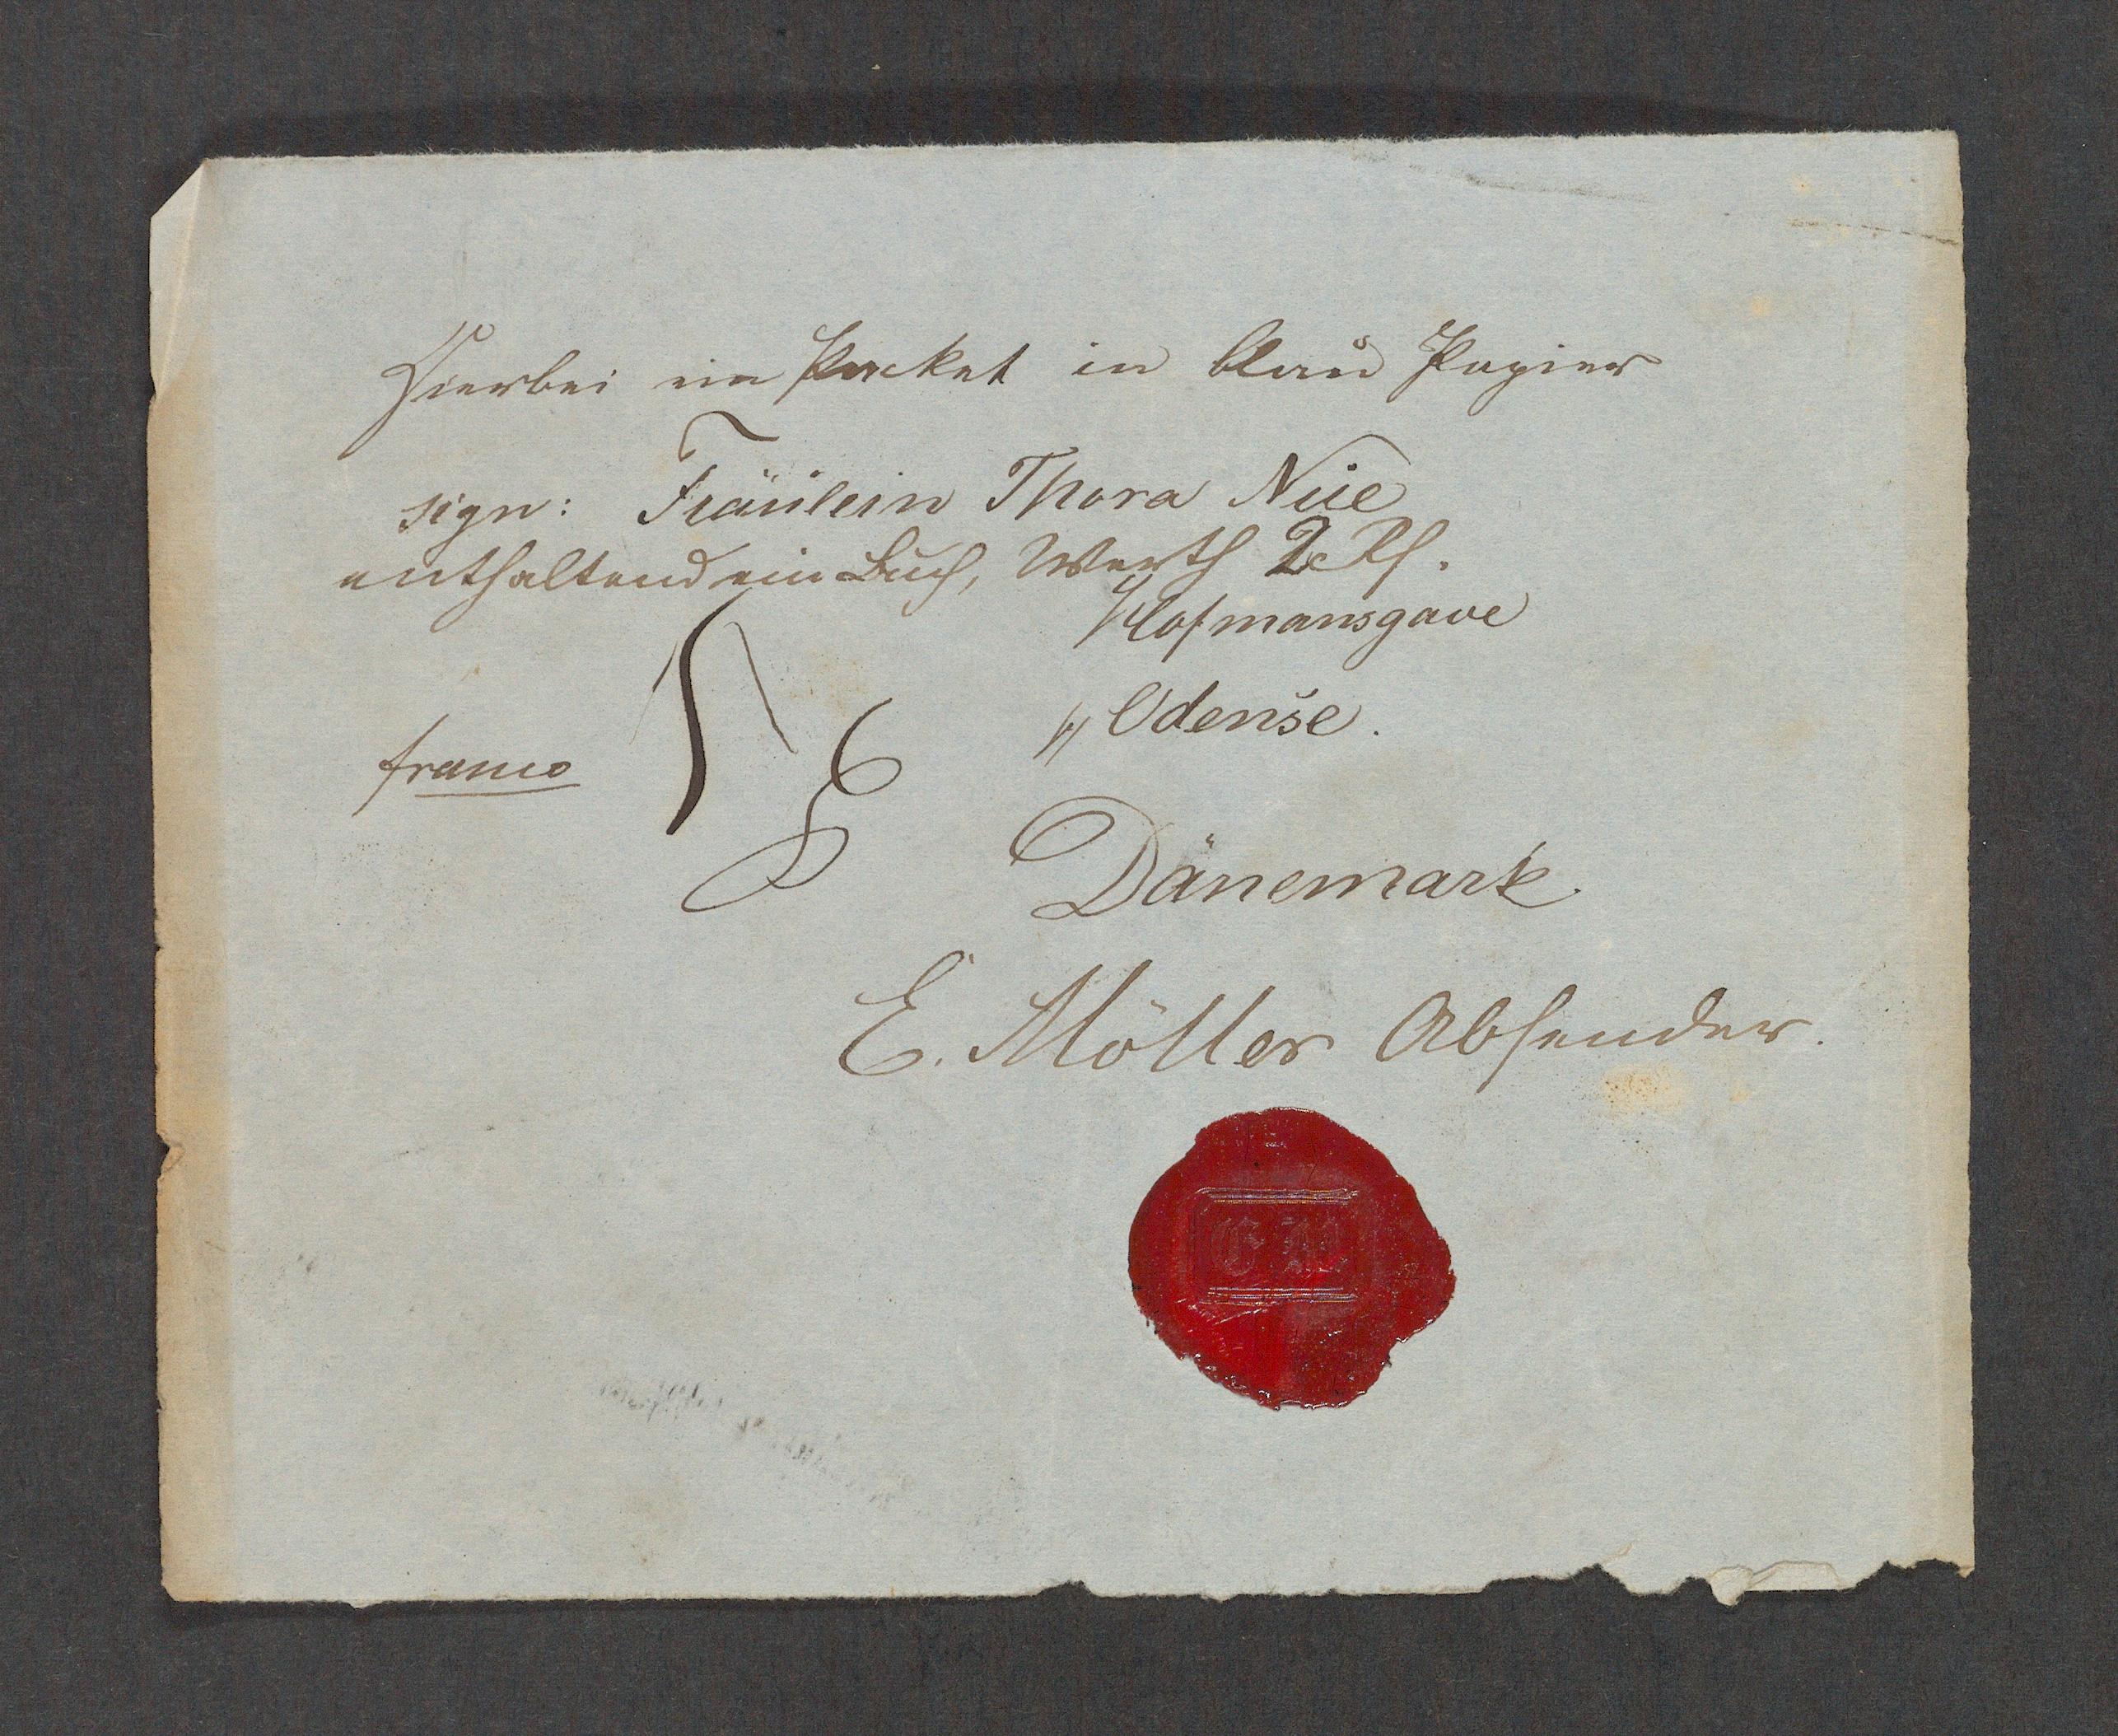 Hierbei ein Packet in blau Papier
sign: Fräulein Thora Nüe
enthaltend ein Buch, Werth 2 Rh.
Hofmansgave
Odense.
franco
Dänemark.
E. Möller Absender.
E M